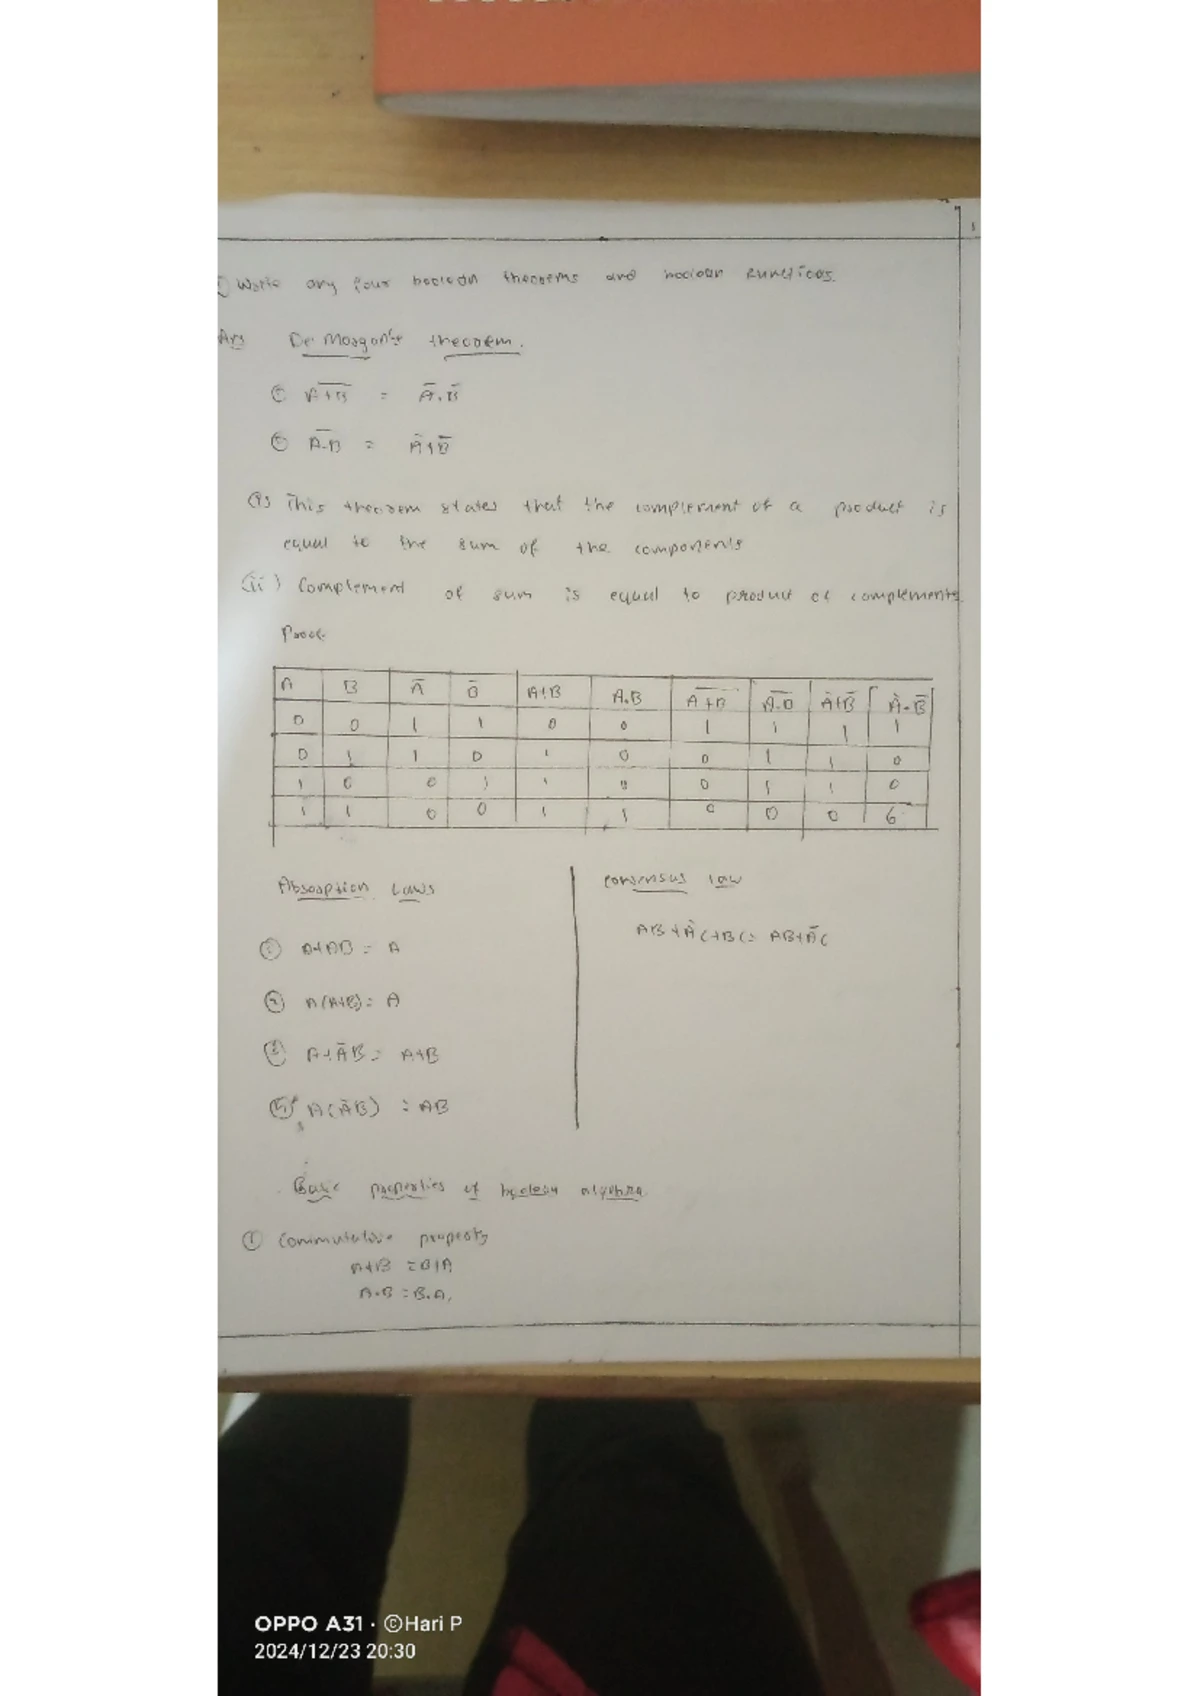 1) Write any four boolean theorems and boolean functions.
Ans De Morgan's theorem.
① A̅+̅B̅ = A̅.B̅
② A̅.̅B̅ = A̅+B̅
(i) This theorem states that the complement of a product is
equal to the sum of the components
(ii) Complement of sum is equal to product of complements.
Proof:
A B A̅ B̅ A+B A.B A̅+̅B̅ A̅.̅B̅ A̅+B̅ A̅.B̅
0 0 1 1 0 0 1 1 1 1
0 1 1 0 1 0 0 1 1 0
1 0 0 1 1 0 0 1 1 0
1 1 0 0 1 1 0 0 0 0
Absorption Laws
① A+AB = A
② A(A+B) = A
③ A+A̅B = A+B
④ A(A̅B) = AB
consensus law
AB+A̅C+BC = AB+A̅C
Basic properties of boolean algebra
① Commutative property
A+B = B+A
A.B = B.A.
OPPO A31 · ©Hari P
2024/12/23 20:30